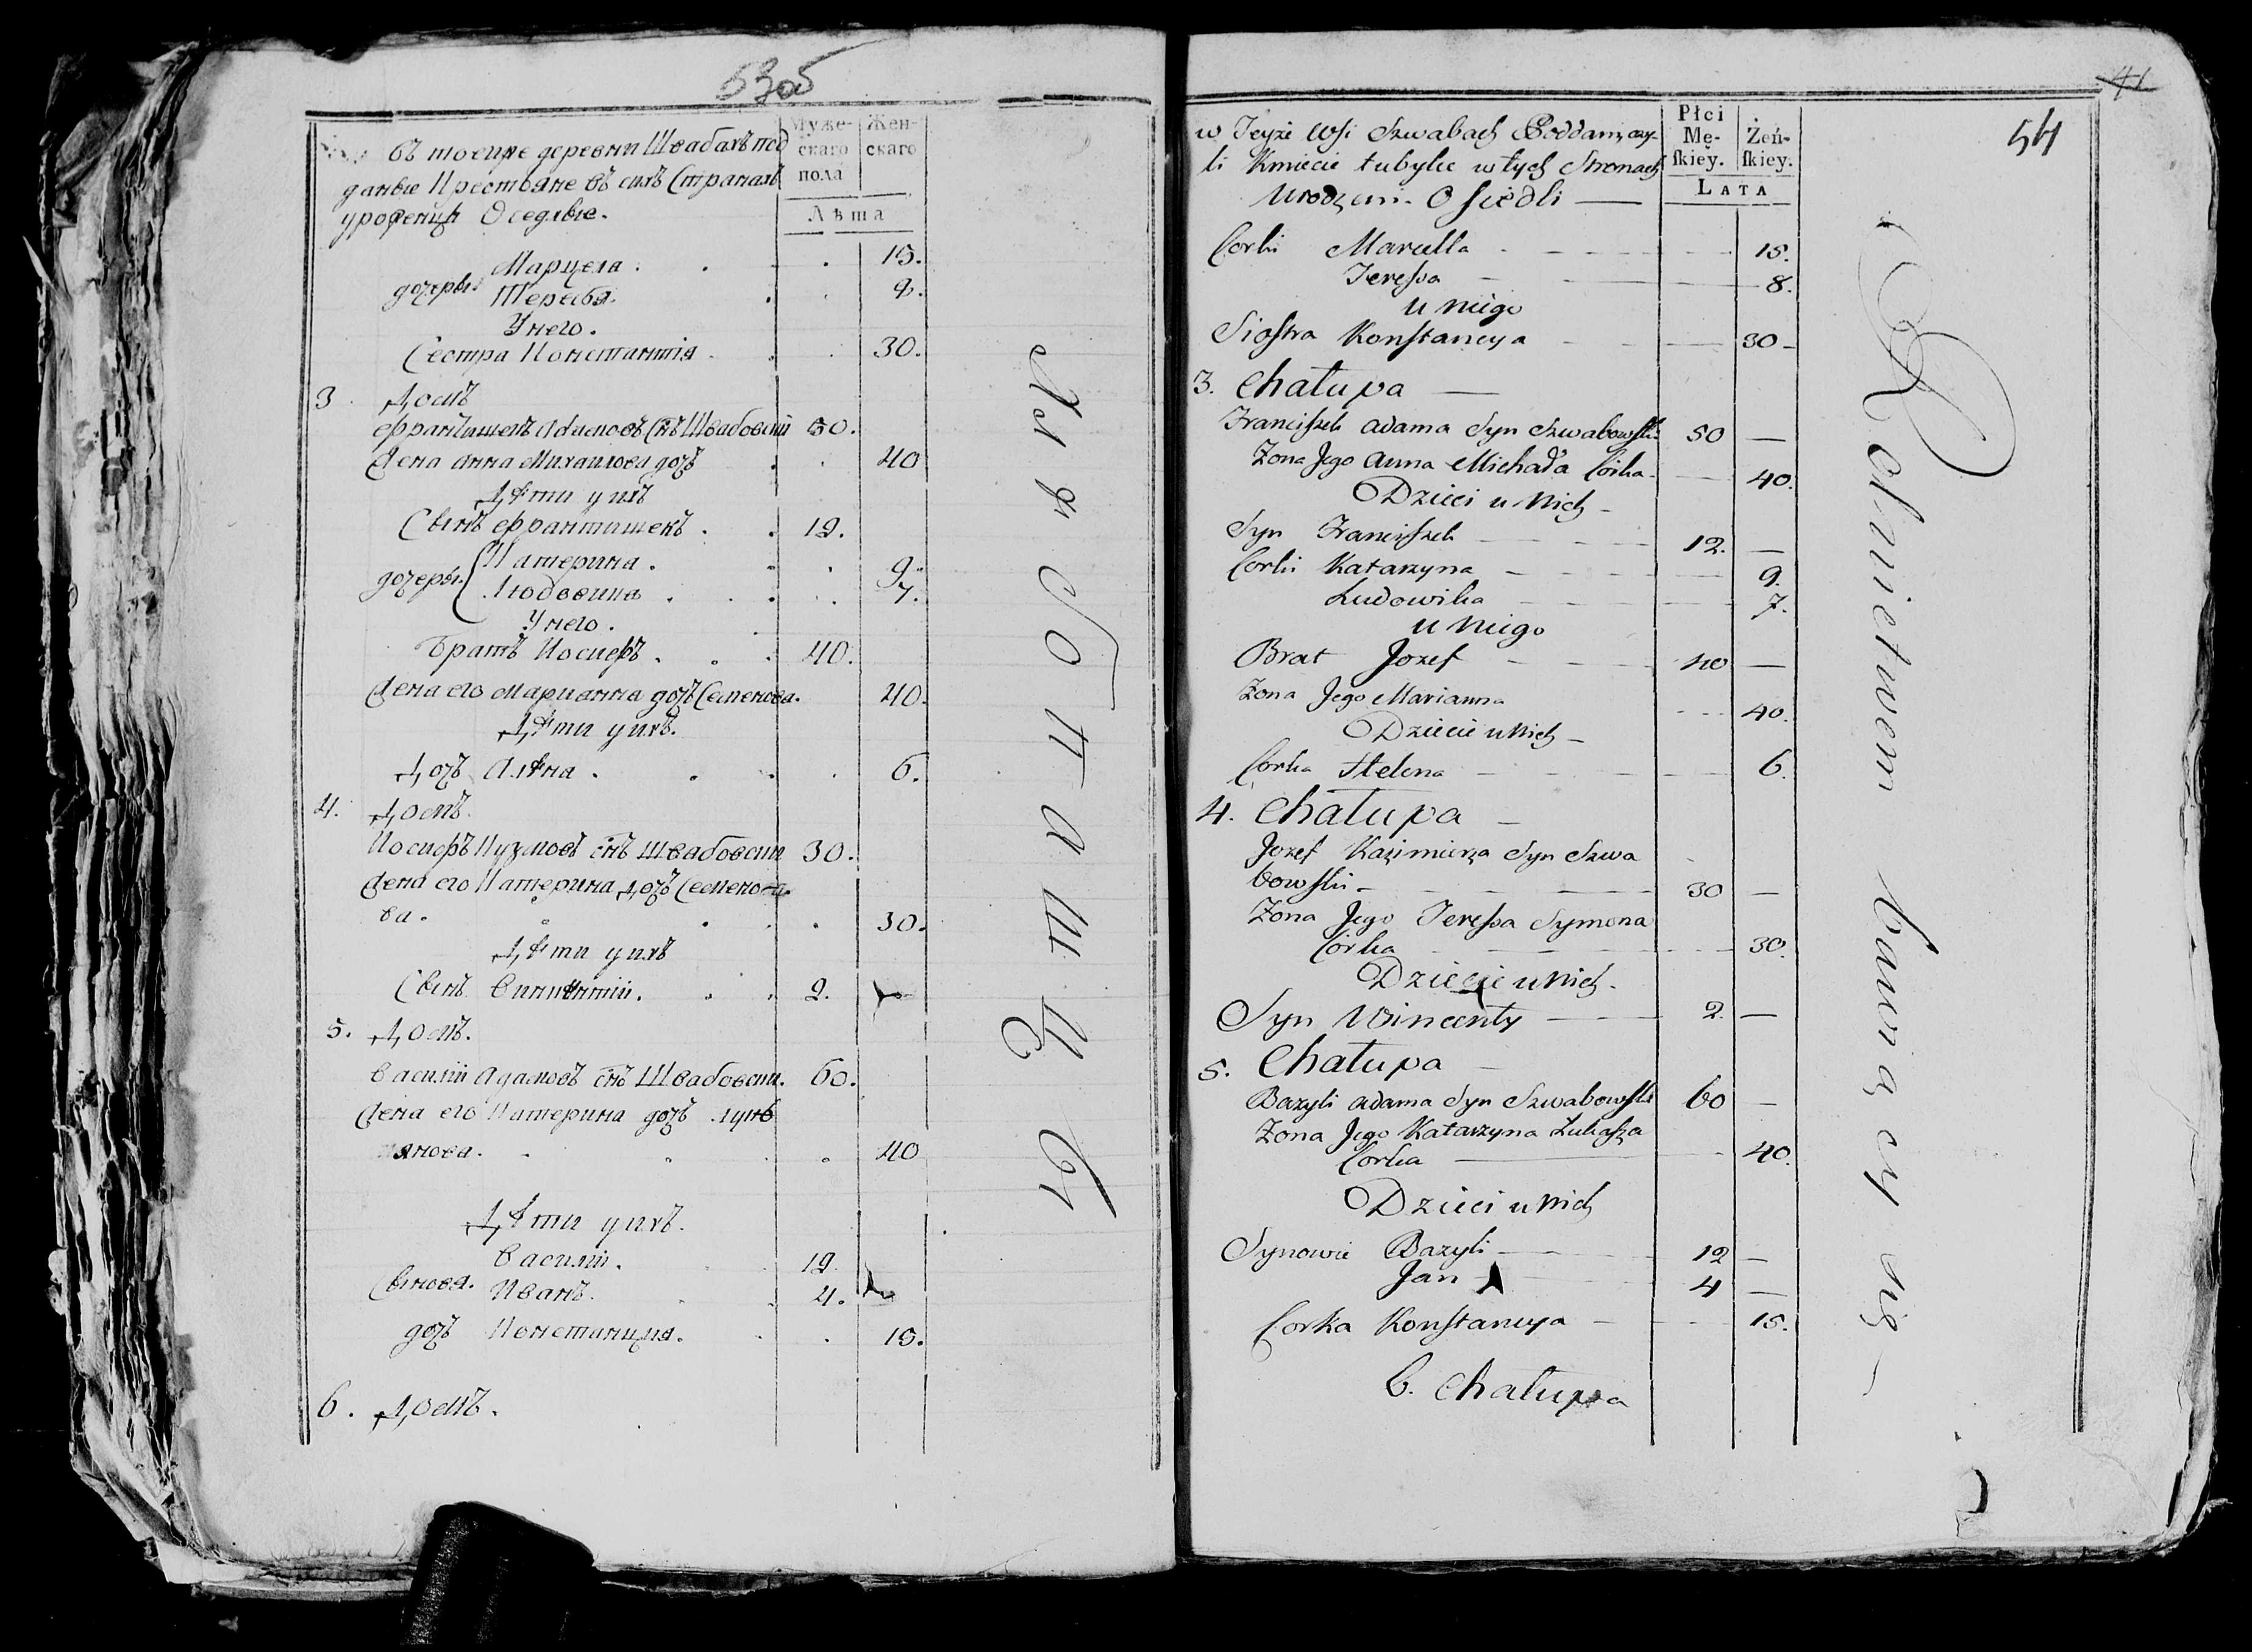 53об
въ тоейже деревни Швабахъ под
данные Крестьяне въ сихъ Странахъ
урожденцы Оседлые.
Муже-
скаго
пола
Жен-
скаго
Лѣта
Марцела . 15.
дочеры Тереса. 8.
У него.
Сестра Констанція . 30.
3 Домъ
Францишекъ Адамовъ Снъ Швабовскій 50.
Жена Анна Михаилова дочь 40
Дѣти у ихъ
Сынъ Франтишекъ . 12.
дочеры Катерина . 9.
Людовика . 7.
У него.
Братъ Иосифъ . 40.
Жена его Марианна дочь Семенова. 40.
Дѣти у ихъ.
Дочь Алѣна . 6.
4. Домъ.
Иосифъ Кузмовъ снъ Швабовски 30.
Жена его Катерина дочь Семено-
ва. 30.
Дѣти у ихъ
Сынъ Викентій. 2.
5. Домъ.
Василій Адамовъ снъ Швабовски. 60.
Жена его Катерина дочь Лукь
янова. 40
Дѣти у ихъ.
Василій. 12
Сыновья. Иванъ. 4.
дочь Констанция. 15.
6. Домъ.
Хлѣбопашцы
41
54
w Teyże Wsi Szwabach Poddani, czy-
li Kmiecie tubylce w tych Stronach
Urodzeni. Osiedli —
Płci
Mę-
skiey.
Żeń-
skiey.
LATA
Corki Marcella 15.
Teressa 8.
u niego
Siostra Konstancya 30
3. Chałupa —
Franciszek Adama Syn Szwabowski 50 —
Zona Jego Anna Michała Córka 40.
Dzieci u Nich
Syn Franciszek 12. —
Corki Katarzyna 9.
Ludowika 7.
u niego
Brat Jozef 40 —
Zona Jego Marianna 40.
Dziecie u Nich
Corka Helena 6.
4. Chałupa —
Jozef Kazimierza Syn Szwa
bowski 30 —
Zona Jego Teressa Symona
Córka 30.
Dziecie u Nich.
Syn Wincenty 2. —
5. Chałupa —
Bazyli Adama Syn Szwabowski 60 —
Zona Jego Katarzyna Łukasza
Corka 40.
Dzieci u Nich
Synowie Bazyli 12 —
Jan 4 —
Corka Konstancya 15.
6. Chałupa
Rolnictwem bawiący się